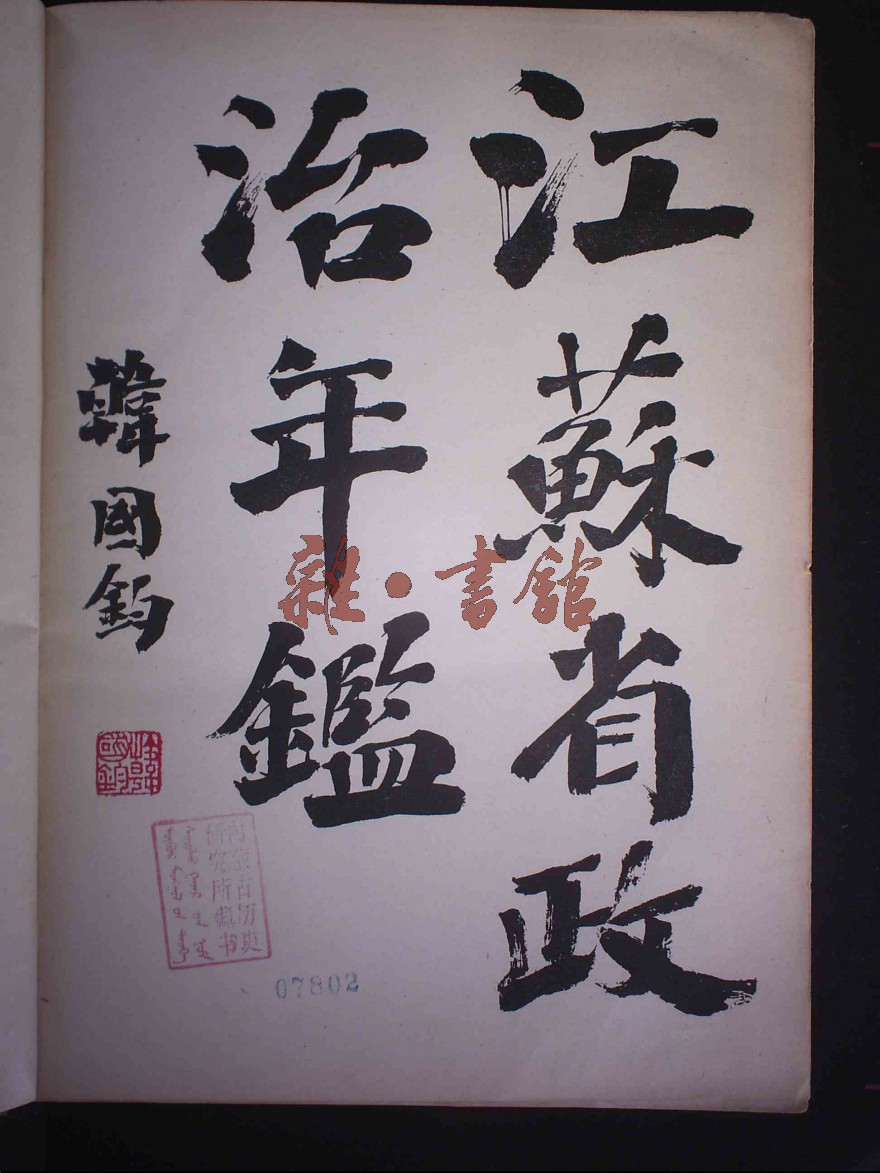 江蘇省政
治年鑑
韓國鈞
內蒙古历史
研究所藏书
07802
雜·書館